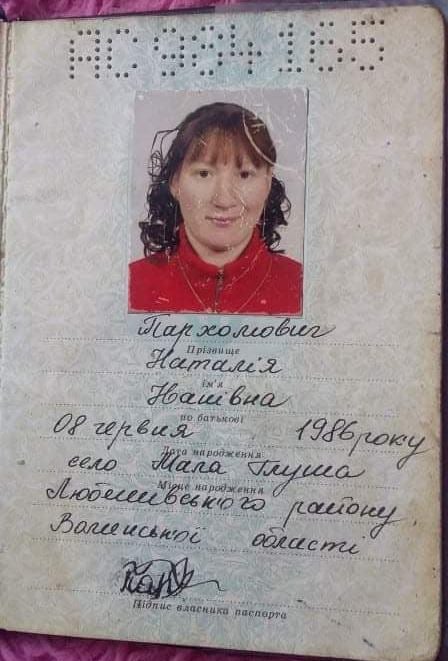 АС 984165
Пархомович
Прізвище
Наталія
ім'я
по батькові
08 червня 1986 року
Дата народження
село Мала Глуша
Місце народження
Любешівського району
Волинської області
Підпис власника паспорта